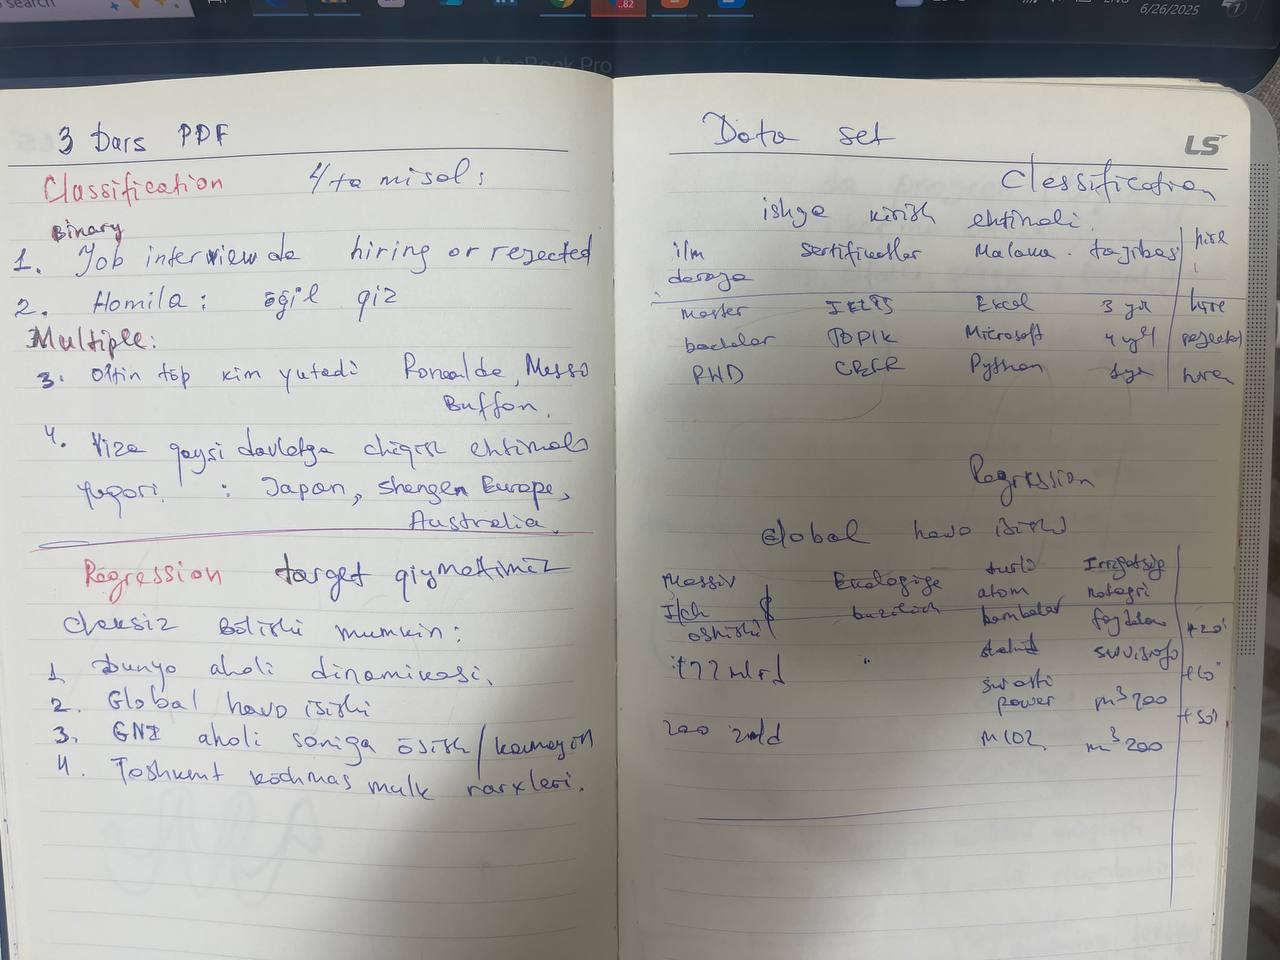 search
..82
6/26/2025
MacBook Pro
3 Dars PDF
Classification 4 ta misol:
Binary
1. Job interviewda hiring or rejected
2. Homila: oğil qiz
Multiple:
3. Oltin top kim yutadi Ronaldo, Messo
Buffon.
4. Viza qaysi davlatga chiqish ehtimoli
yuqori : Japan, Shengen Europe,
Australia.
Regression target qiymatimiz
cheksiz bolishi mumkin:
1 Dunyo aholi dinamikasi.
2. Global havo isishi
3. GNI aholi soniga osish/kamayish
4. Toshkent kochmas mulk narxlari.
Data set
LS
Classification
ishga kirish ehtimoli.
ilm sertificatlar Malaka. tajibas hire
daraja
Master IELTS Excel 3 yil hire
bachelor TOPIK Microsoft 4 yil rejected
PHD CEFR Python hire
Regression
Global havo isishi
Massiv Ekologiya turli Irrigatsiya
Ich buzilish atom notogri
oshishi bombalar foydalan +20°
177 mlrd " suvisrofi
+60°
power m³ 700
+50°
200 mld MCO2 m³ 200